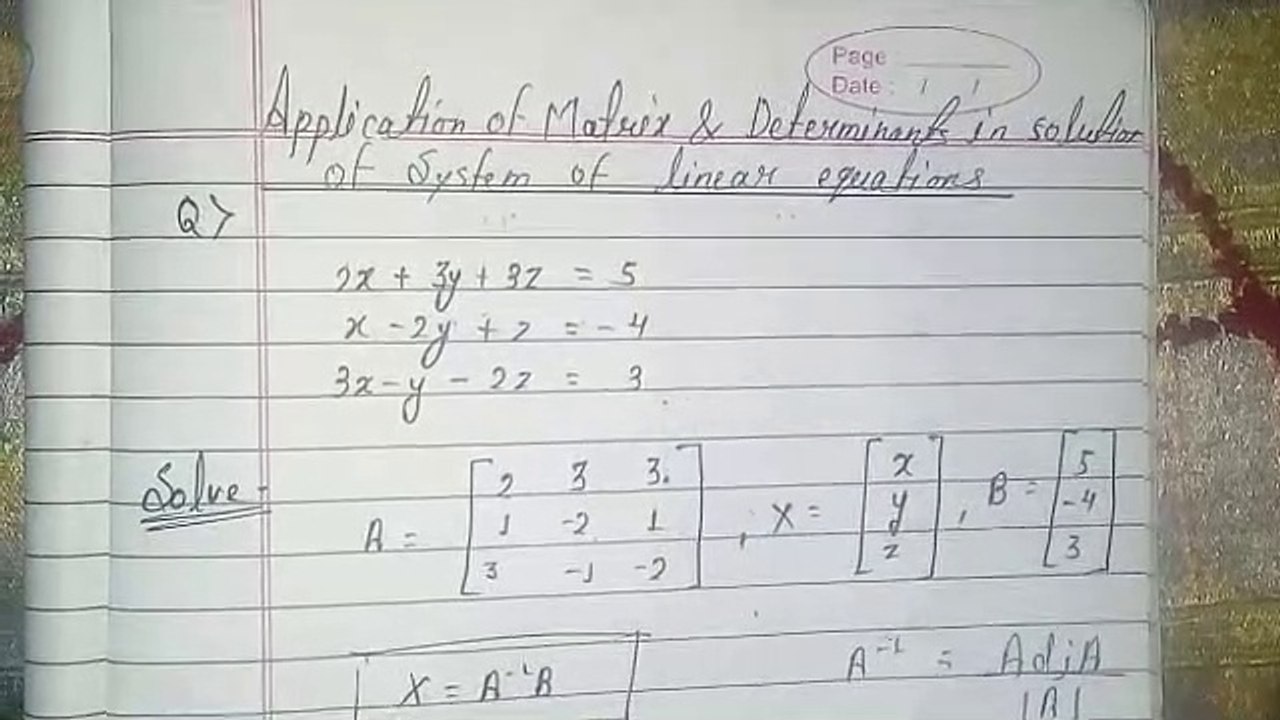 Page
Date : / /
Application of Matrix & Determinants in solution
of System of linear equations
Q>
2x + 3y + 3z = 5
x - 2y + z = - 4
3x - y - 2z = 3
Solve
A = [ 2 3 3. ; 1 -2 1 ; 3 -1 -2 ] , X = [ x ; y ; z ] , B = [ 5 ; -4 ; 3 ]
X = A⁻¹B
A⁻¹ = AdjA / |A|